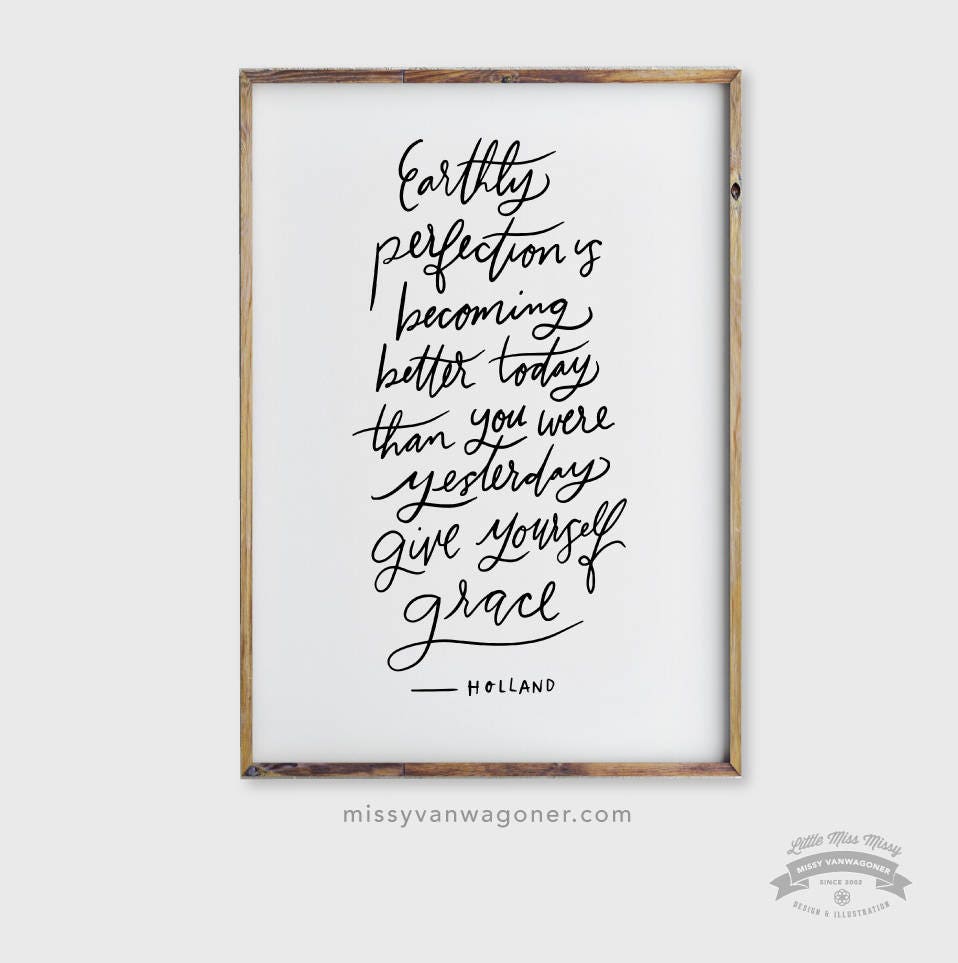 Earthly
perfection is
becoming
better today
than you were
yesterday
give yourself
grace
— HOLLAND
missyvanwagoner.com
Little Miss Missy
MISSY VANWAGONER
SINCE 2002
DESIGN & ILLUSTRATION